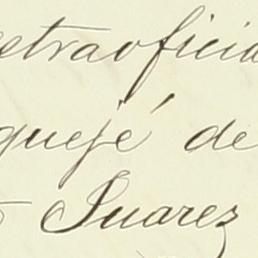 etraoficia
quejé de
Suarez